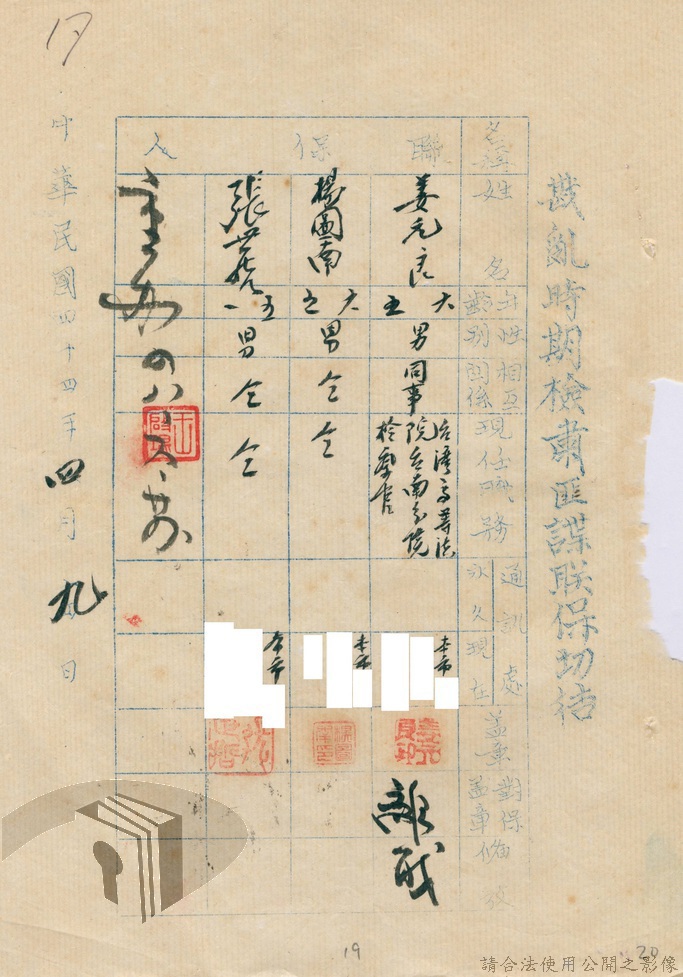 戡亂時期檢肅匪諜联保切结
聯保人
姓名
年龄
性别
相互關係
現任職務
通訊處
永久
現在
盖章
對保盖章
備攷
姜元良
六五
男
同事
台灣高等法院台南分院檢察官
本市
離職
楊圖南
六五
男
仝
仝
本市
五一
男
仝
仝
本市
中華民國四十四年四月九日
17
19
20
請合法使用公開之影像